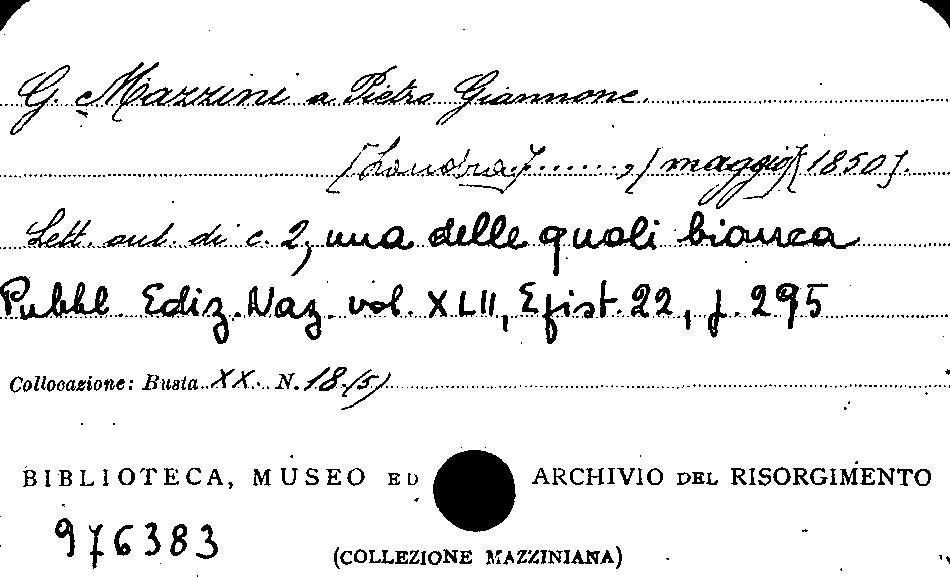 G. Mazzini a Pietro Giannone.
[Londra], ......, [maggio] [1850].
Lett. aut. di c. 2, una delle quali bianca
Pubbl. Ediz. Naz. vol. XLII, Epist. 22, p. 295
Collocazione: Busta XX. N. 18 (5)
BIBLIOTECA, MUSEO ED ARCHIVIO DEL RISORGIMENTO
976383
(COLLEZIONE MAZZINIANA)